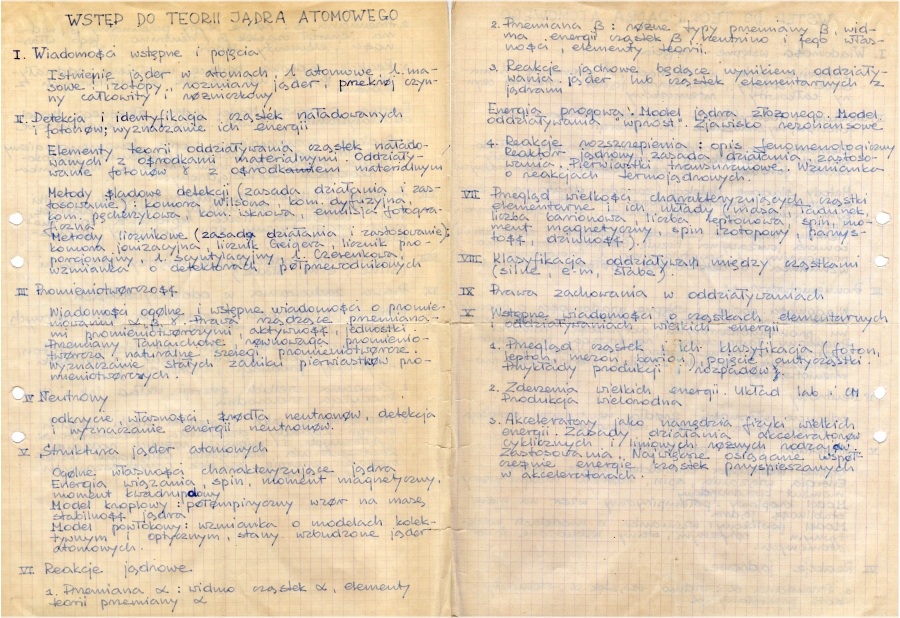 WSTĘP DO TEORII JĄDRA ATOMOWEGO
I. Wiadomości wstępne i pojęcia
Istnienie jąder w atomach, l. atomowe, l. ma-
sowe, izotopy, rozmiary jąder, przekrój czyn-
ny całkowity i różniczkowy
II. Detekcja i identyfikacja cząstek naładowanych
i fotonów; wyznaczanie ich energii
Elementy teorii oddziaływania cząstek nałado-
wanych z ośrodkami materialnymi. Oddziały-
wanie fotonów γ z ośrodkiem materialnym
Metody śladowe detekcji (zasada działania i zas-
tosowanie): komora Wilsona, kom. dyfuzyjna,
kom. pęcherzykowa, kom. iskrowa, emulsja fotogra-
ficzna
Metody licznikowe (zasada działania i zastosowanie):
komora jonizacyjna, licznik Geigera, licznik pro-
porcjonalny, l. scyntylacyjny, l. Czerenkowa,
wzmianka o detektorach półprzewodnikowych
III Promieniotwórczość
Wiadomości ogólne i wstępne wiadomości o promie-
niowaniu α, β, γ. Prawa rządzące przemiana-
mi promieniotwórczymi, aktywność, jednostki.
Przemiany łańcuchowe, równowaga promienio-
twórcza, naturalne szeregi promieniotwórcze.
Wyznaczanie stałych zaniku pierwiastków pro-
mieniotwórczych.
IV Neutrony
odkrycie, własności, źródła neutronów, detekcja
i wyznaczanie energii neutronów.
V Struktura jąder atomowych
Ogólne własności charakteryzujące jądra
Energia wiązania, spin, moment magnetyczny,
moment kwadrupolowy
Model kroplowy: półempiryczny wzór na masę,
stabilność jądra
Model powłokowy: wzmianka o modelach kolek-
tywnym i optycznym, stany wzbudzone jąder
atomowych.
VI Reakcje jądrowe.
1. Przemiana α: widmo cząstek α, elementy
teorii przemiany α
2. Przemiana β: różne typy przemiany β, wid-
ma energii cząstek β, neutrino i jego włas-
ności, elementy teorii.
3. Reakcje jądrowe będące wynikiem oddziały-
wania jąder lub cząstek elementarnych z
jądrami
Energia progowa. Model jądra złożonego. Model
oddziaływania "wprost". Zjawisko rezonansowe
4. Reakcje rozszczepienia: opis fenomenologiczny
Reaktor jądrowy, zasada działania, zastoso-
wania. Pierwiastki transuranowe. Wzmianka
o reakcjach termojądrowych.
VII Przegląd wielkości charakteryzujących cząstki
elementarne i ich układy (masa, ładunek,
liczba barionowa, liczba leptonowa, spin, mo-
ment magnetyczny, spin izotopowy, parzys-
tość, dziwność).
VIII Klasyfikacja oddziaływań między cząstkami
(silne, e-m, słabe).
IX Prawa zachowania w oddziaływaniach
X Wstępne wiadomości o cząstkach elementarnych
i oddziaływaniach wielkich energii
1. Przegląd cząstek i ich klasyfikacja (foton,
lepton, mezon, barion), pojęcie antycząstki.
Przykłady produkcji i rozpadów.
2. Zderzenia wielkich energii. Układ lab. i CM
Produkcja wielorodna
3. Akceleratory jako narzędzia fizyki wielkich
energii. Zasady działania akceleratorów
cyklicznych i liniowych różnych rodzajów.
Zastosowania, Największe osiągane współ-
cześnie energie cząstek przyspieszanych
w akceleratorach.